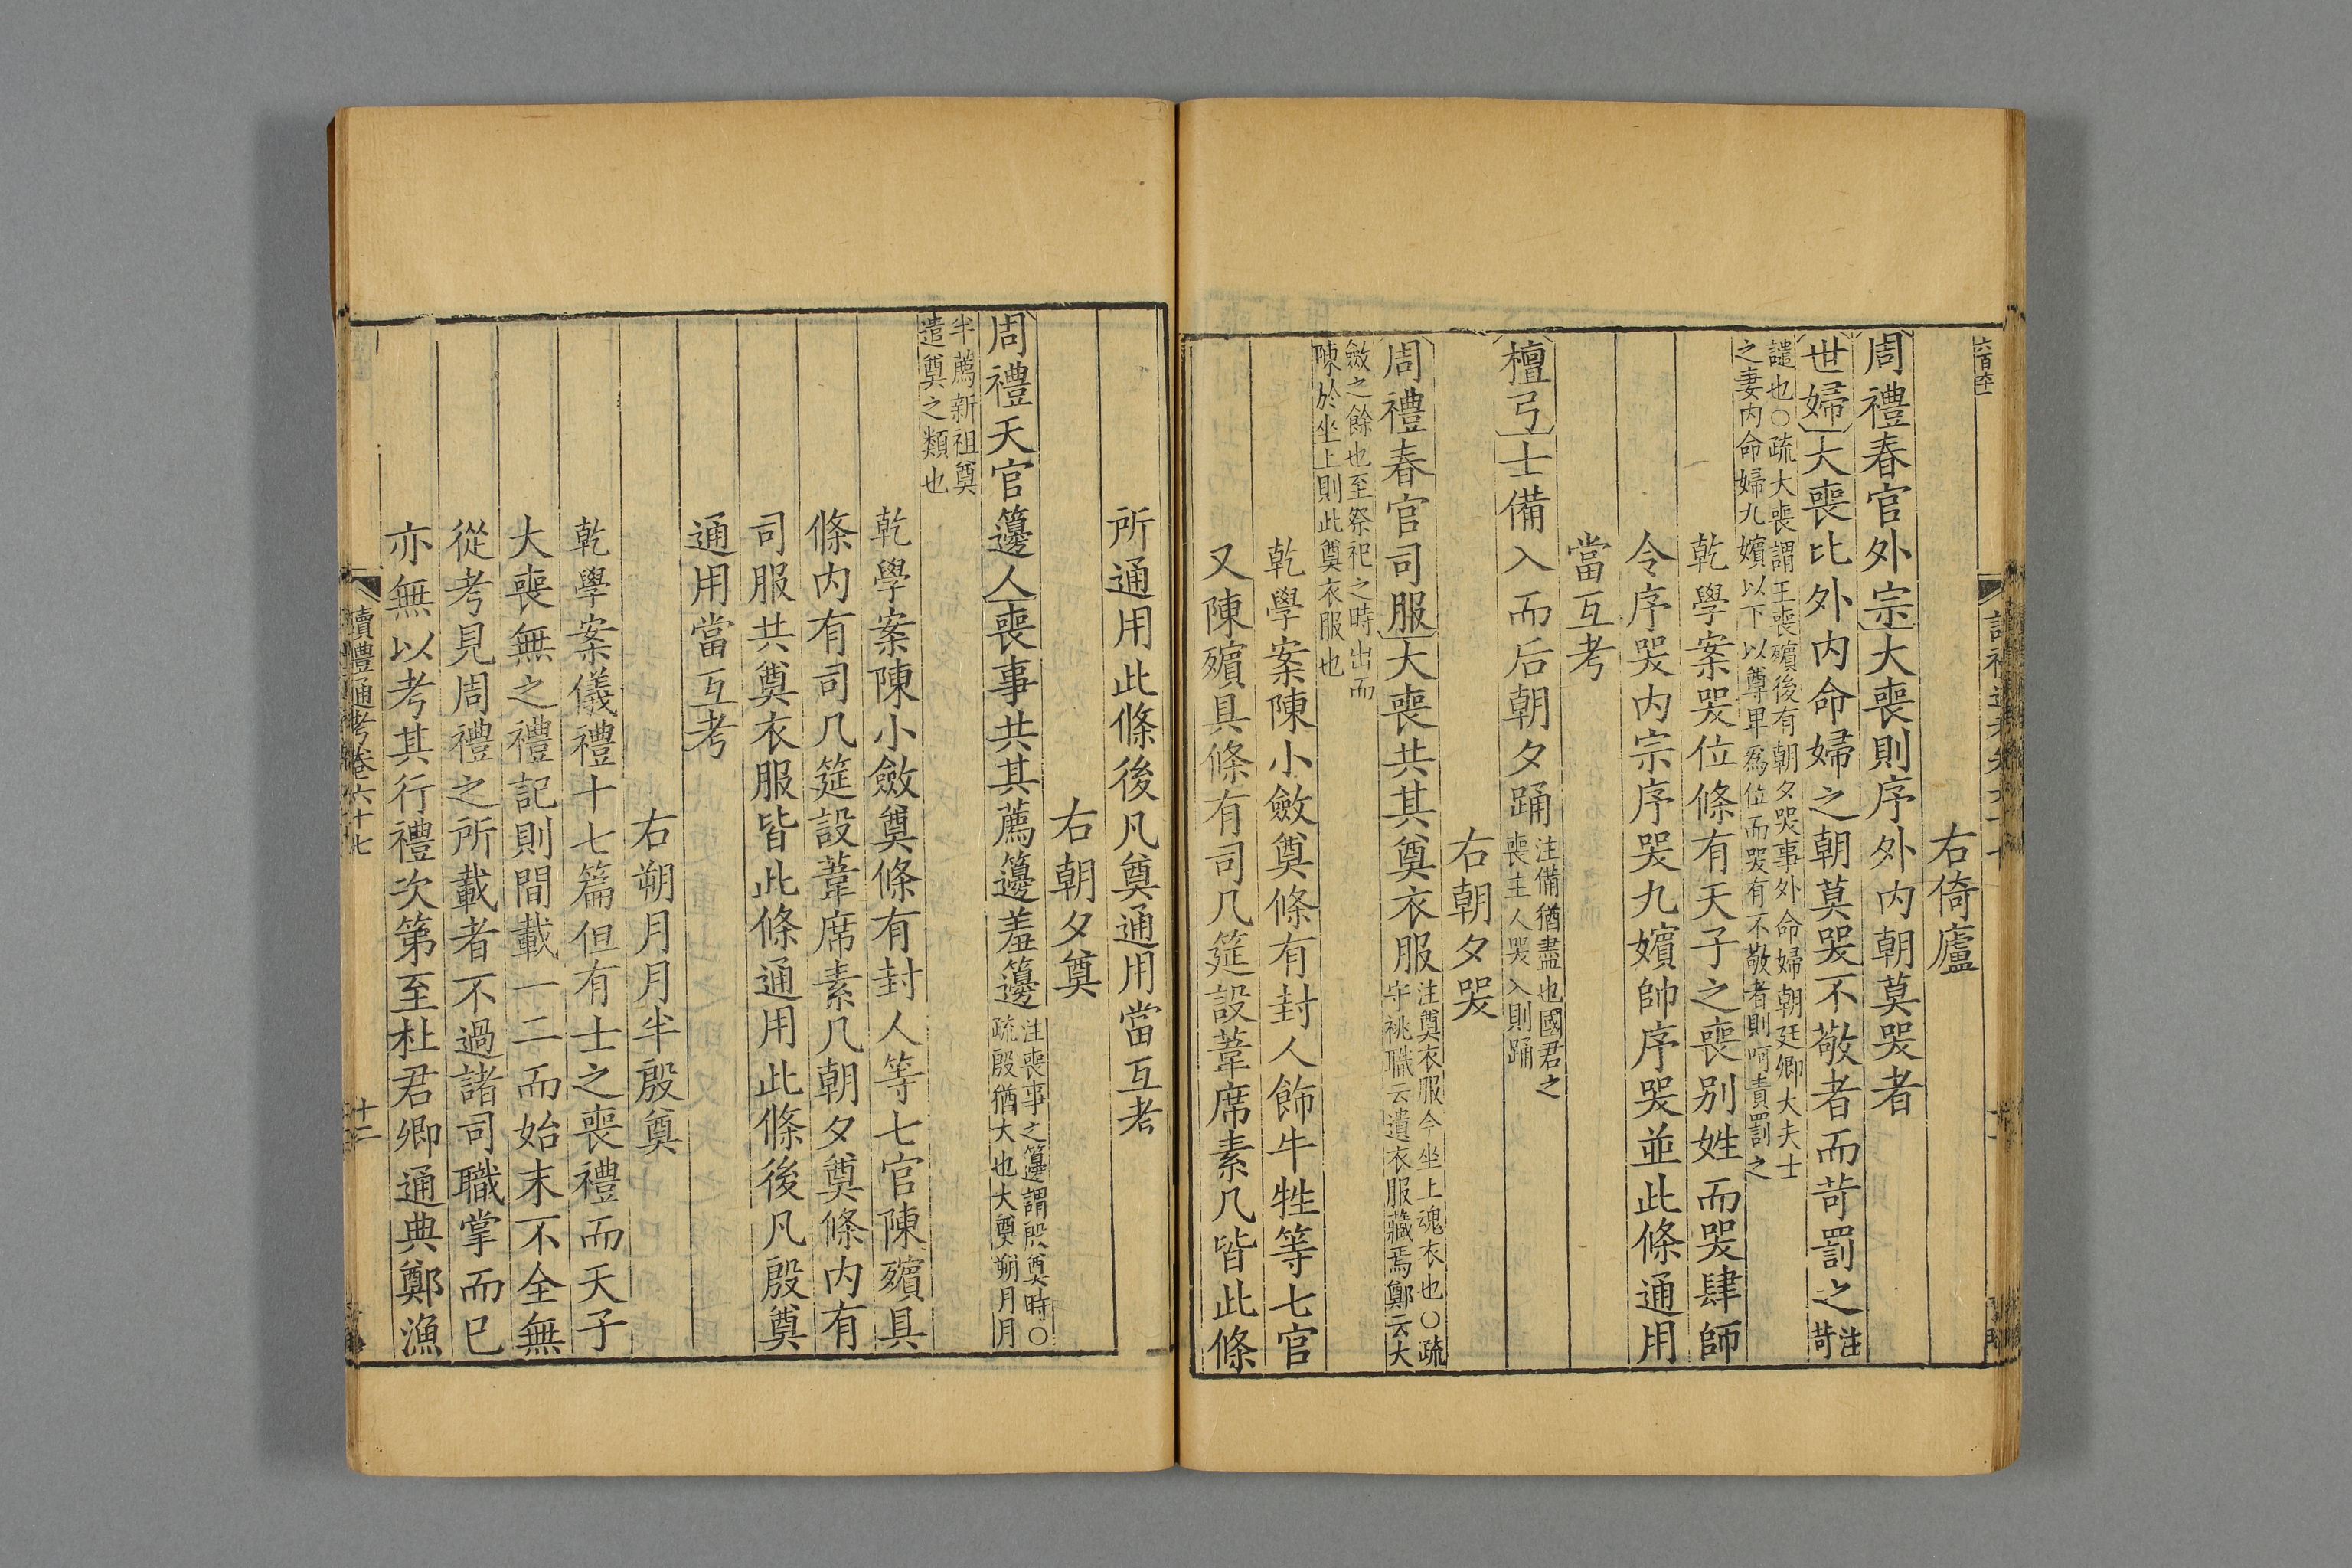 右倚廬
周禮春官外宗大喪則序外內朝莫哭者
世婦大喪比外內命婦之朝莫哭不敬者而苛罰之注苛
譴也○疏大喪謂王喪殯後有朝夕哭事外命婦朝廷卿大夫士
之妻內命婦九嬪以下以尊卑爲位而哭有不敬者則呵責罰之
乾學案哭位條有天子之喪別姓而哭肆師
令序哭內宗序哭九嬪帥序哭並此條通用
當互考
檀弓士備入而后朝夕踊注備猶盡也國君之
喪主人哭入則踊
右朝夕哭
周禮春官司服大喪共其奠衣服注奠衣服今坐上魂衣也○疏
守祧職云遺衣服藏焉鄭云大
斂之餘也至祭祀之時出而
陳於坐上則此奠衣服也
乾學案陳小斂奠條有封人飾牛牲等七官
又陳殯具條有司几筵設葦席素几皆此條
所通用此條後凡奠通用當互考
右朝夕奠
周禮天官籩人喪事共其薦籩羞籩注喪事之籩謂殷奠時○
疏殷猶大也大奠朔月月
半薦新祖奠
遣奠之類也
乾學案陳小斂奠條有封人等七官陳殯具
條內有司几筵設葦席素几朝夕奠條內有
司服共奠衣服皆此條通用此條後凡殷奠
通用當互考
右朔月月半殷奠
乾學案儀禮十七篇但有士之喪禮而天子
大喪無之禮記則間載一二而始末不全無
從考見周禮之所載者不過諸司職掌而已
亦無以考其行禮次第至杜君卿通典鄭漁
讀禮通考卷六十七
十二